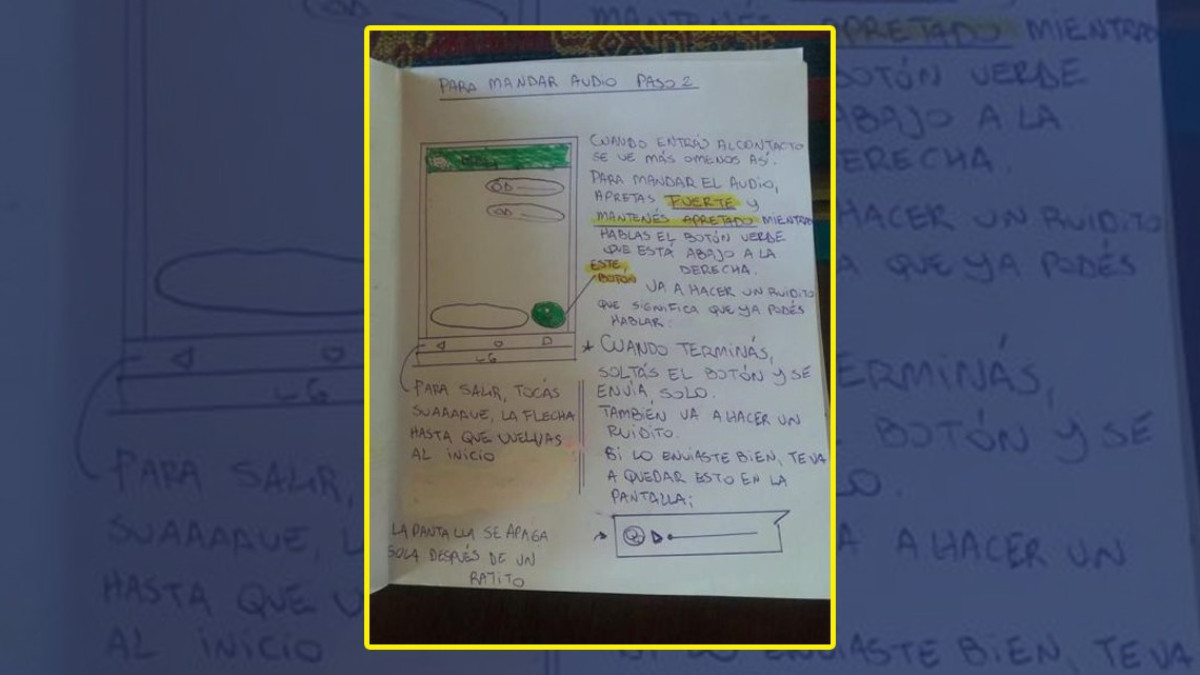 PARA MANDAR AUDIO PASO 2
CUANDO ENTRÁS AL CONTACTO
SE VE MÁS OMENOS ASÍ.
PARA MANDAR EL AUDIO,
APRETAS FUERTE Y
MANTENÉS APRETADO MIENTRAS
HABLAS EL BOTÓN VERDE
QUE ESTÁ ABAJO A LA
DERECHA.
ESTE
BOTÓN
VA A HACER UN RUIDITO
QUE SIGNIFICA QUE YA PODÉS
HABLAR.
* CUANDO TERMINÁS,
SOLTÁS EL BOTÓN Y SE
ENVÍA, SOLO.
TAMBIÉN VA A HACER UN
RUIDITO.
SI LO ENVIASTE BIEN, TE VA
A QUEDAR ESTO EN LA
PANTALLA;
LG
PARA SALIR, TOCÁS
SUAAAAVE, LA FLECHA
HASTA QUE VUELVAS
AL INICIO
LA PANTALLA SE APAGA
SOLA DESPUÉS DE UN
RATITO